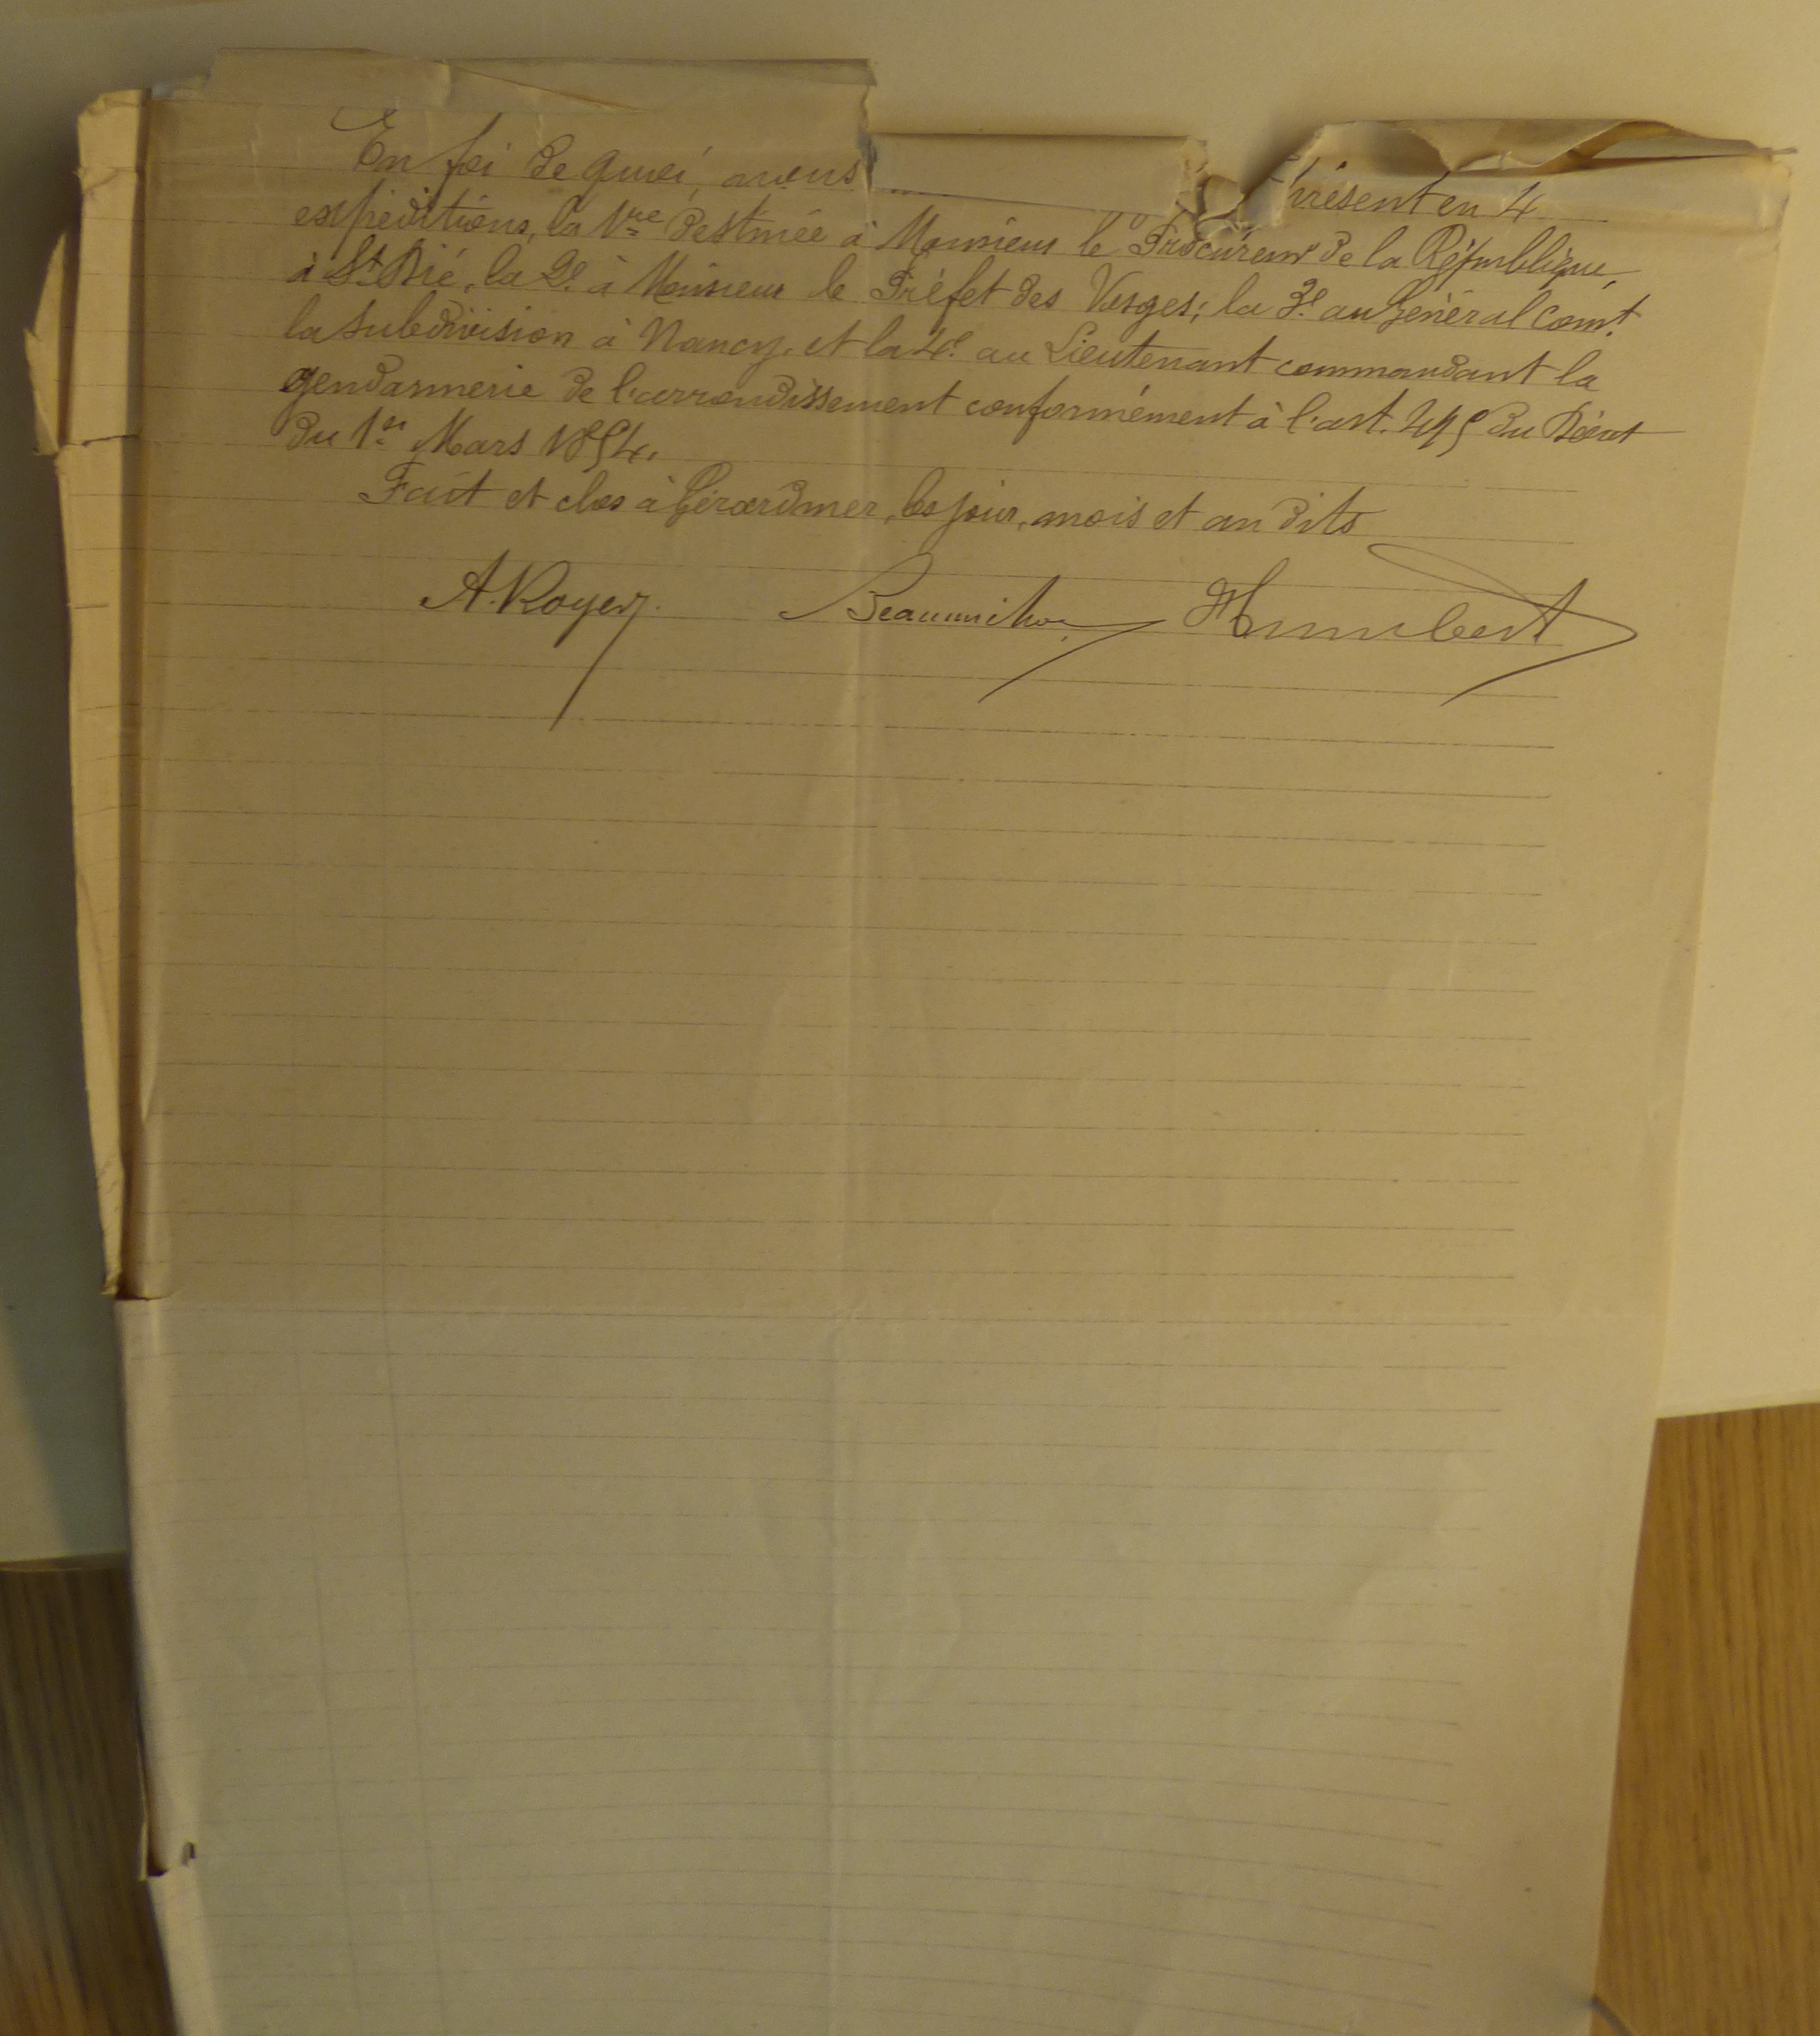 En foi de quoi, avons présent en 4
expéditions, la 1re destinée à Monsieur le Procureur de la République,
à St Dié, la 2e à Monsieur le Préfet des Vosges; la 3e au Général Comt
la subdivision à Nancy, et la 4e au Lieutenant commandant la
gendarmerie de l'arrondissement conformément à l'art. 495 du Décret
du 1er Mars 1854.
Fait et clos à Gérardmer, les jour, mois et an dits
A. Royer Humbert